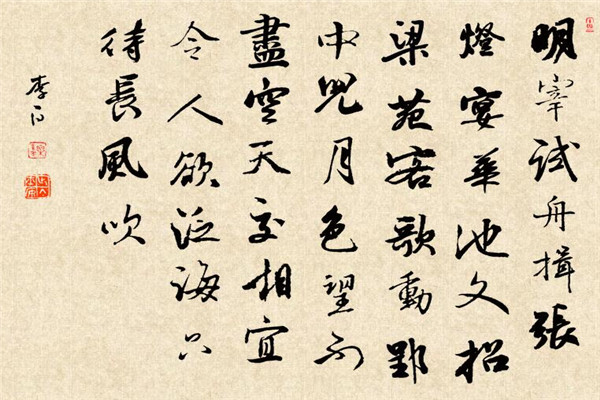 明宰試舟揖張
燈宴華池文招
梁苑客歌動郢
中兒月色望不
盡空天交相宜
令人欲泛海只
待長風吹
李白